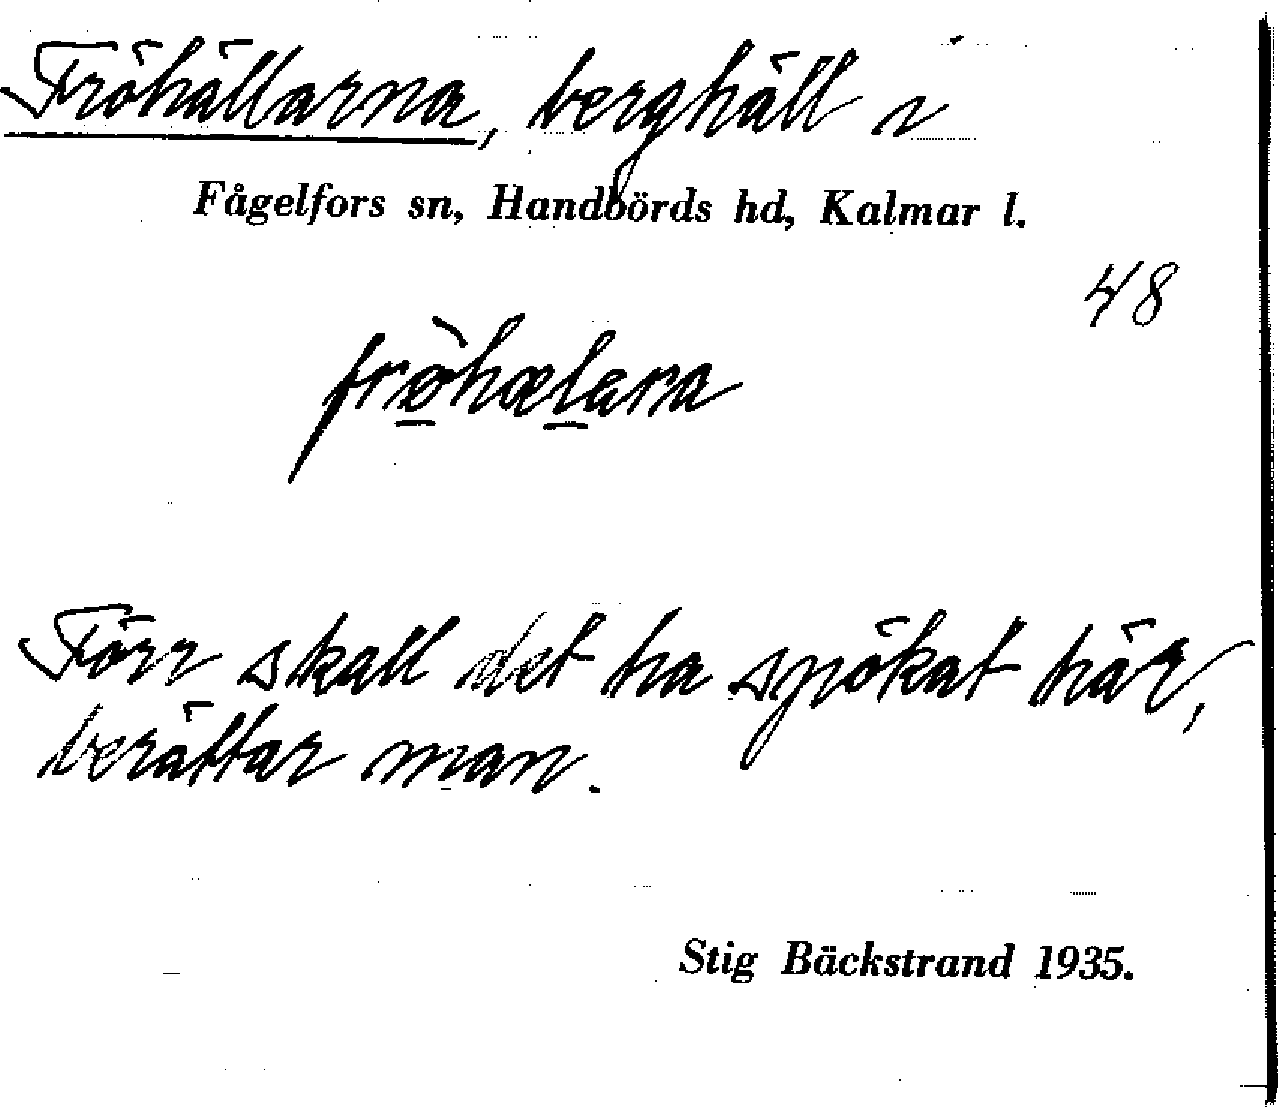 Fröhällarna, berghäll i
Fågelfors sn, Handbörds hd, Kalmar l.
48
fròhælarna
Förr skall det ha spökat här,
berättar man.
Stig Bäckstrand 1935.